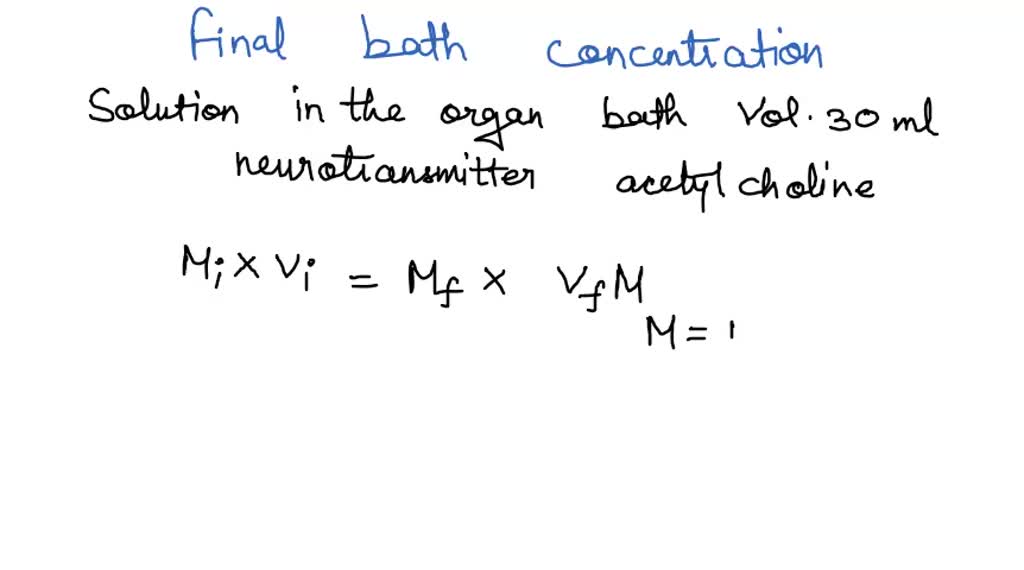 final bath concentration
Solution in the organ bath Vol. 30 ml
neurotransmitter acetyl choline
Mi × Vi = Mf × Vf M
M = 1